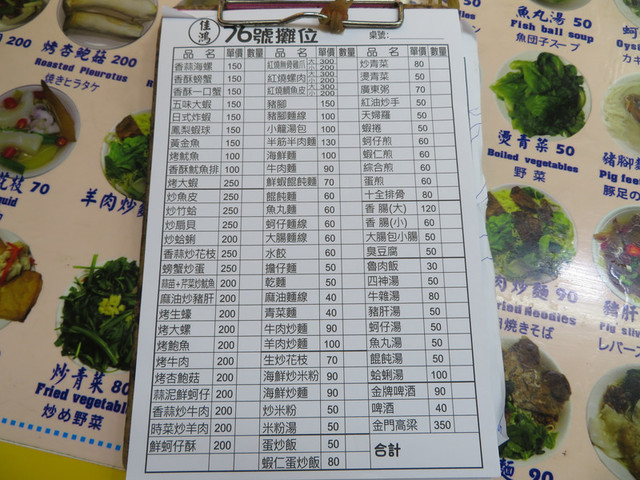 佳鴻 76號攤位 桌號:
品 名 單價 數量 品 名 單價 數量 品 名 單價 數量
香蒜海螺 150 紅燒無骨雞爪 大 300 小 200 炒青菜 80
香酥螃蟹 150 紅燒螺肉 大 300 小 200 燙青菜 50
香酥一口蟹 150 紅燒鯛魚皮 大 300 小 200 廣東粥 70
五味大蝦 150 豬腳 150 紅油炒手 50
日式炸蝦 150 豬腳麵線 100 天婦羅 50
鳳梨蝦球 150 小龍湯包 100 蝦捲 50
黃金魚 150 半筋半肉麵 130 蚵仔煎 60
烤魷魚 100 海鮮麵 100 蝦仁煎 60
香酥魷魚排 100 牛肉麵 90 綜合煎 60
烤大蝦 250 鮮蝦餛飩麵 70 蛋煎 60
炒魚皮 250 餛飩麵 60 十全排骨 80
炒竹蛤 250 魚丸麵 50 香 腸(大) 120
炒扇貝 250 蚵仔麵線 60 香 腸(小) 60
炒蛤蜊 200 大腸麵線 60 大腸包小腸 50
香蒜炒花枝 250 水餃 60 臭豆腐 50
螃蟹炒蛋 250 擔仔麵 50 魯肉飯 30
蒜苗+芹菜炒魷魚 200 乾麵 50 四神湯 50
麻油炒豬肝 200 麻油麵線 40 牛雜湯 80
烤生蠔 200 青菜麵 40 豬肝湯 50
烤大螺 200 牛肉炒麵 90 蚵仔湯 50
烤鮑魚 200 羊肉炒麵 100 魚丸湯 50
烤牛肉 200 生炒花枝 70 餛飩湯 50
烤杏鮑菇 200 海鮮炒米粉 90 蛤蜊湯 100
蒜泥鮮蚵仔 200 海鮮炒麵 90 金牌啤酒 90
香蒜炒牛肉 200 炒米粉 50 啤酒 40
時菜炒羊肉 200 米粉湯 50 金門高粱 350
鮮蚵仔酥 200 蛋炒飯 50 合計
蝦仁蛋炒飯 80
200
烤杏鮑菇 200
Roasted Pleurotus
焼きヒラタケ
花枝 70
羊肉炒麵
炒青菜 80
Fried vegetables
炒め野菜
魚丸湯 50
Fish ball soup
魚団子スープ
燙青菜 50
Boiled vegetables
野 菜
肉炒麵 90
Fried Noodles
肉焼きそば
豬腳麵
豬肝
レバー